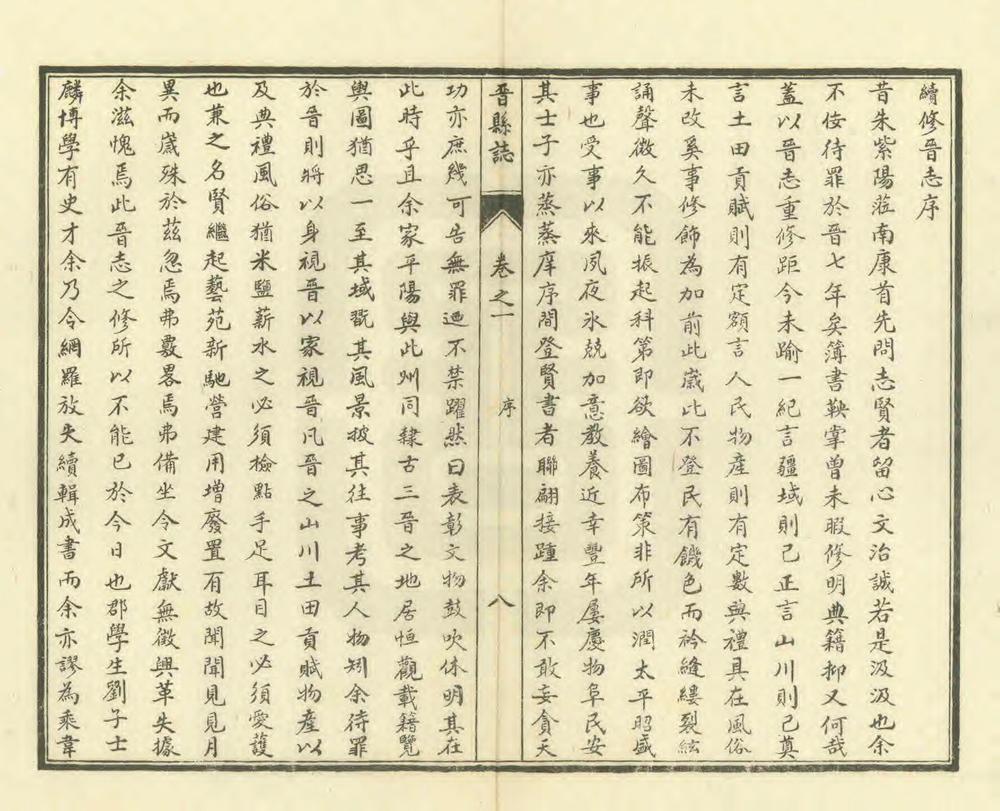 續修晉志序
昔朱紫陽蒞南康首先問志賢者留心文治誠若是汲汲也余
不佞待罪於晉七年矣簿書鞅掌曾未暇修明典籍抑又何哉
蓋以晉志重修距今未踰一紀言疆域則已正言山川則已奠
言土田貢賦則有定額言人民物產則有定數與禮具在風俗
未改奚事修飾為加前此歲比不登民有饑色而衿縫縷裂絃
誦聲微久不能振起科第即欲繪圖布策非所以潤太平昭盛
事也受事以來夙夜氷兢加意教養近幸豐年屢慶物阜民安
其士子亦蒸蒸庠序間登賢書者聯翩接踵余即不敢妄貪天
晉縣誌
卷之一
序
八
功亦庶幾可告無罪迺不禁躍然曰表彰文物鼓吹休明其在
此時乎且余家平陽與此州同隸古三晉之地居恒觀載籍覽
輿圖猶思一至其域翫其風景披其往事考其人物矧余待罪
於晉則將以身視晉以家視晉凡晉之山川土田貢賦物產以
及典禮風俗猶米鹽薪水之必須檢點手足耳目之必須愛護
也兼之名賢繼起藝苑新馳營建用增廢置有故聞聞見見月
異而歲殊於茲忽焉弗覈畧焉弗備坐令文獻無徵興革失據
余滋愧焉此晉志之修所以不能已於今日也郡學生劉子士
麟博學有史才余乃令網羅放失續輯成書而余亦謬為乘韋